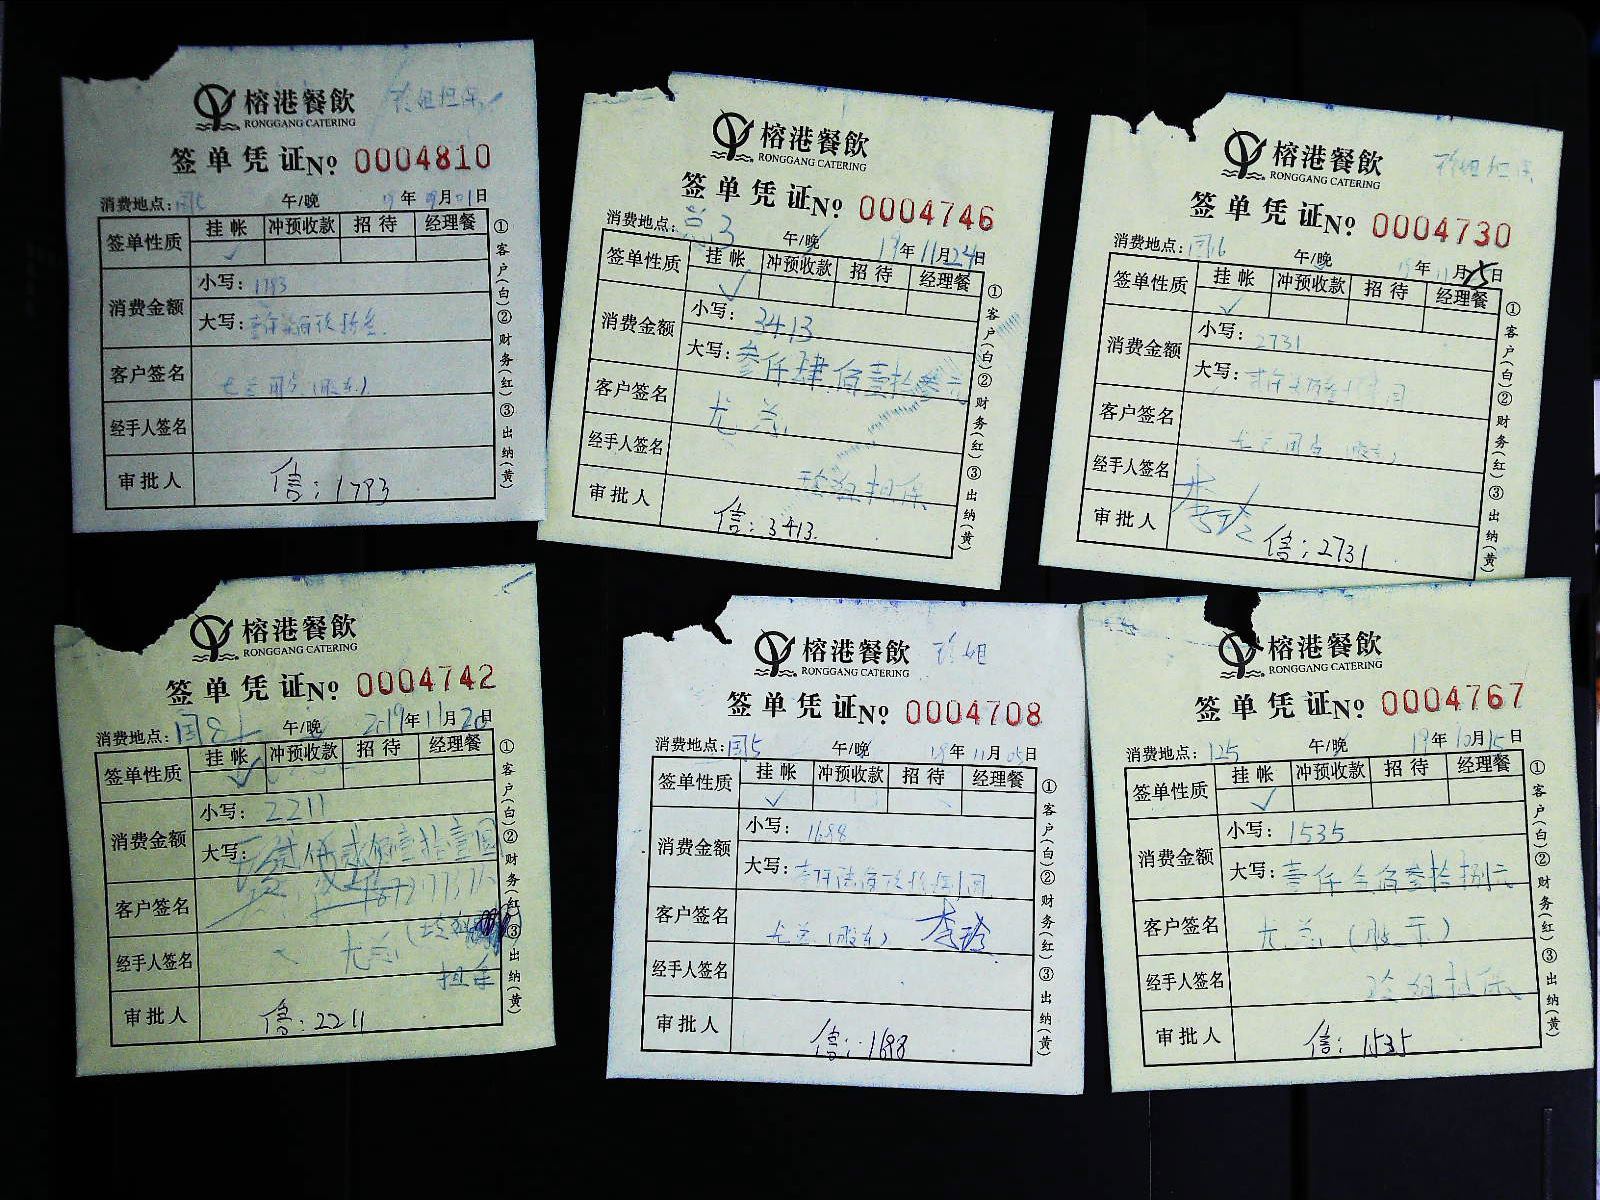 榕港餐飲
RONGGANG CATERING
签单凭证No 0004810
消费地点: 午/晚 19年 月01日
签单性质 挂帐 冲预收款 招待 经理餐
消费金额 小写: 1793
大写:
客户签名 (股东)
经手人签名
审批人 信:1793
①客户(白)②财务(红)③出纳(黄)
榕港餐飲
RONGGANG CATERING
签单凭证No 0004746
消费地点: 午/晚 19年11月24日
签单性质 挂帐 冲预收款 招待 经理餐
消费金额 小写: 3413
大写: 叁仟肆佰壹拾叁元
客户签名 尤总
经手人签名 玲姐担保
审批人 信:3413.
①客户(白)②财务(红)③出纳(黄)
榕港餐飲 玲姐担保
RONGGANG CATERING
签单凭证No 0004730
消费地点: 午/晚 19年11月15日
签单性质 挂帐 冲预收款 招待 经理餐
消费金额 小写: 2731
大写:
客户签名
经手人签名 李玲
审批人 信:2731
①客户(白)②财务(红)③出纳(黄)
榕港餐飲
RONGGANG CATERING
签单凭证No 0004742
消费地点: 午/晚 2019年11月20日
签单性质 挂帐 冲预收款 招待 经理餐
消费金额 小写: 2211
大写: 贰仟贰佰壹拾壹圆
客户签名
经手人签名 尤总 担保
审批人 信:2211
①客户(白)②财务(红)③出纳(黄)
榕港餐飲 玲姐
RONGGANG CATERING
签单凭证No 0004708
消费地点: 午/晚 19年11月05日
签单性质 挂帐 冲预收款 招待 经理餐
消费金额 小写: 1688
大写:
客户签名 尤总(股东) 李玲
经手人签名
审批人 信:1688
①客户(白)②财务(红)③出纳(黄)
榕港餐飲
RONGGANG CATERING
签单凭证No 0004767
消费地点: 125 午/晚 19年10月15日
签单性质 挂帐 冲预收款 招待 经理餐
消费金额 小写: 1535
大写: 壹仟 佰叁拾捌元
客户签名 尤总(股东)
经手人签名 玲姐担保
审批人 信:1535
①客户(白)②财务(红)③出纳(黄)